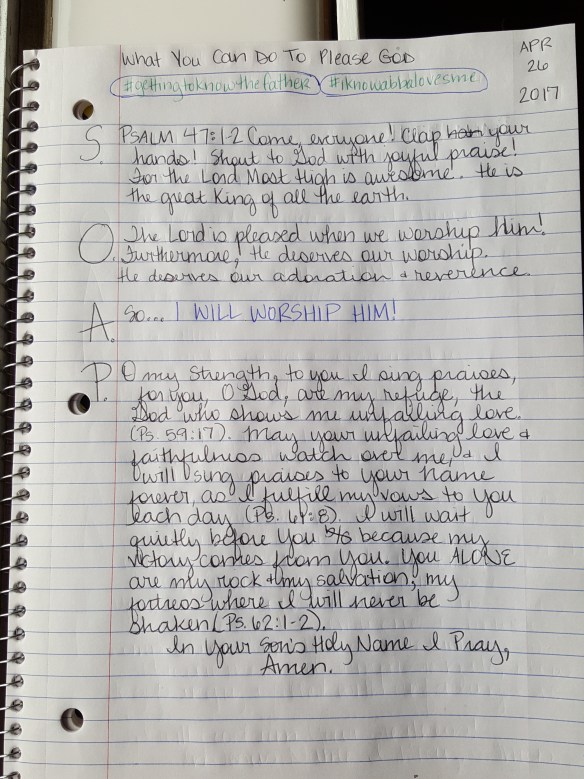 What You Can Do To Please God
APR
26
2017
#gettingtoknowthefather #iknowabbalovesme
S. PSALM 47:1-2 Come, everyone! Clap your
hands! Shout to God with joyful praise!
For the Lord Most High is awesome. He is
the great King of all the earth.
O. The Lord is pleased when we worship Him!
Furthermore, He deserves our worship.
He deserves our adoration & reverence.
A. So... I WILL WORSHIP HIM!
P. O my Strength, to you I sing praises,
for you, O God, are my refuge, the
God who shows me unfailing love.
(Ps. 59:17). May your unfailing love &
faithfulness watch over me, & I
will sing praises to Your Name
forever, as I fulfill my vows to You
each day (Ps. 61:8). I will wait
quietly before You because my
victory comes from You. You ALONE
are my rock & my salvation; my
fortress where I will never be
shaken (Ps. 62:1-2).
In Your Son's Holy Name I Pray,
Amen.